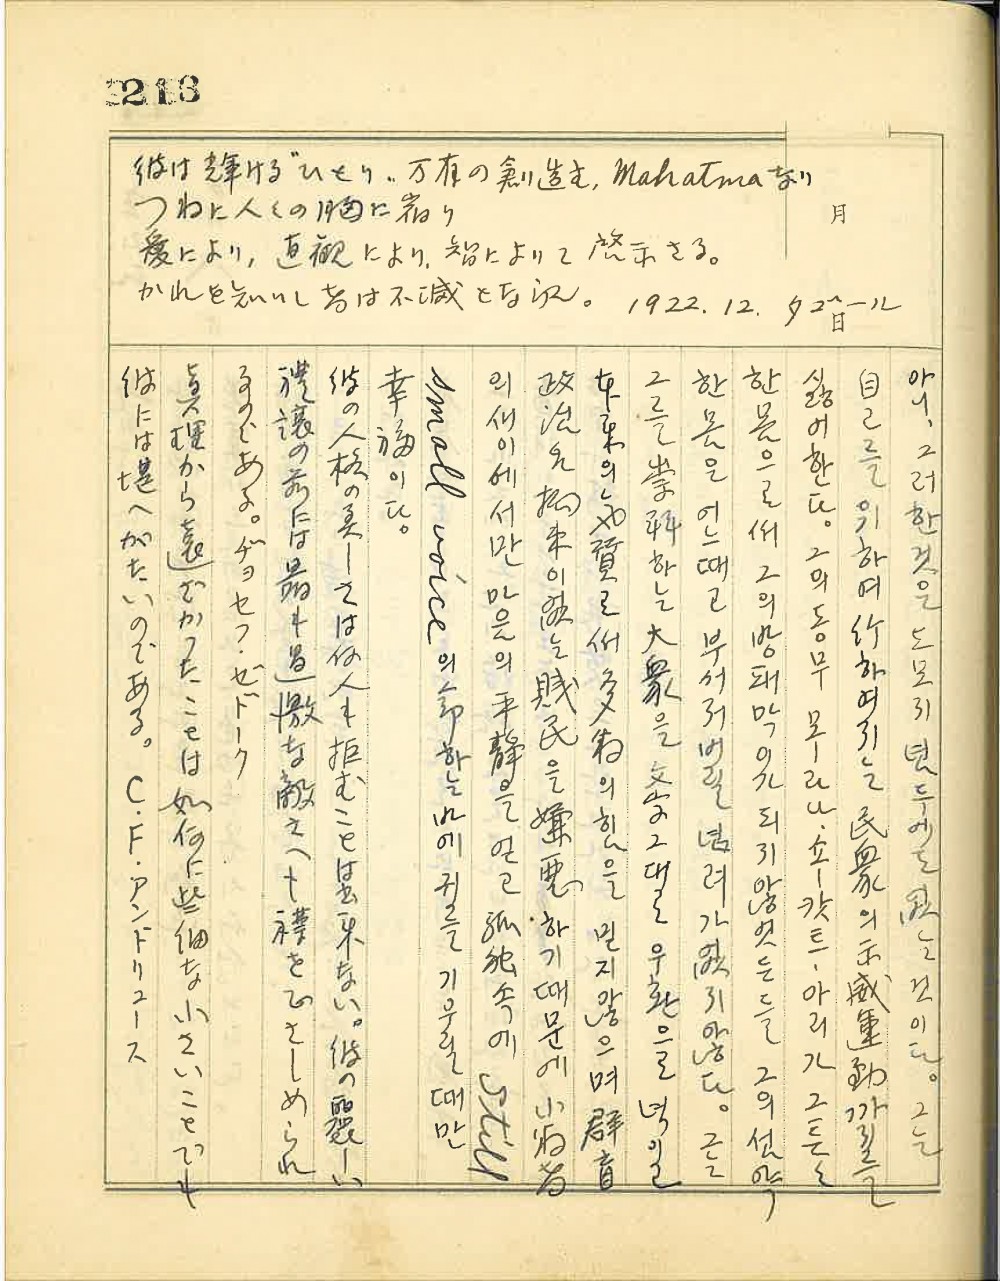 213
彼は輝ける"ひとり"万有の創造主, Mahatmaなり
つねに人々の胸に宿り
愛により, 直観により, 智によりて 啓示さる。
かれを知りし者は不滅となる。 1922. 12. タゴール
月
日
아니, 그러한것은 도모지 념두에도 없는 것이다. 그는
自己를 위하여 行하여지는 民衆의 示威運動까지를
싫어한다. 그의 동무 모-라나·쇼-캇트·아리가 그 튼튼
한몸으로써 그의 방패막이가 되지않엇든들 그의 섬약
한몸은 어느때고 부서저버릴 념려가 없지않다. 그는
그를 崇拜하는 大衆을 文字그대로 우환으로 녁일
本來의 氣質로써 多数의 힘을 믿지않으며 群盲
政治와 拘束이없는 賎民을 嫌悪하기때문에 小数者
의 새이에서만 마음의 平靜을 얻고 孤独속에 still
small voice의 命하는바에 귀를 기우릴 때만
幸福이다.
彼の人格の美しさは何人も拒むことは出来ない。彼の麗しい
礼譲の前には最も過激な敵さへも襟を正さしめられ
るのである。ヂョセフ・ゼドーク
真理から遠ざかつたことは如何に些細な小さいことでも
彼には堪へがたいのである。 C.F.アンドリュース